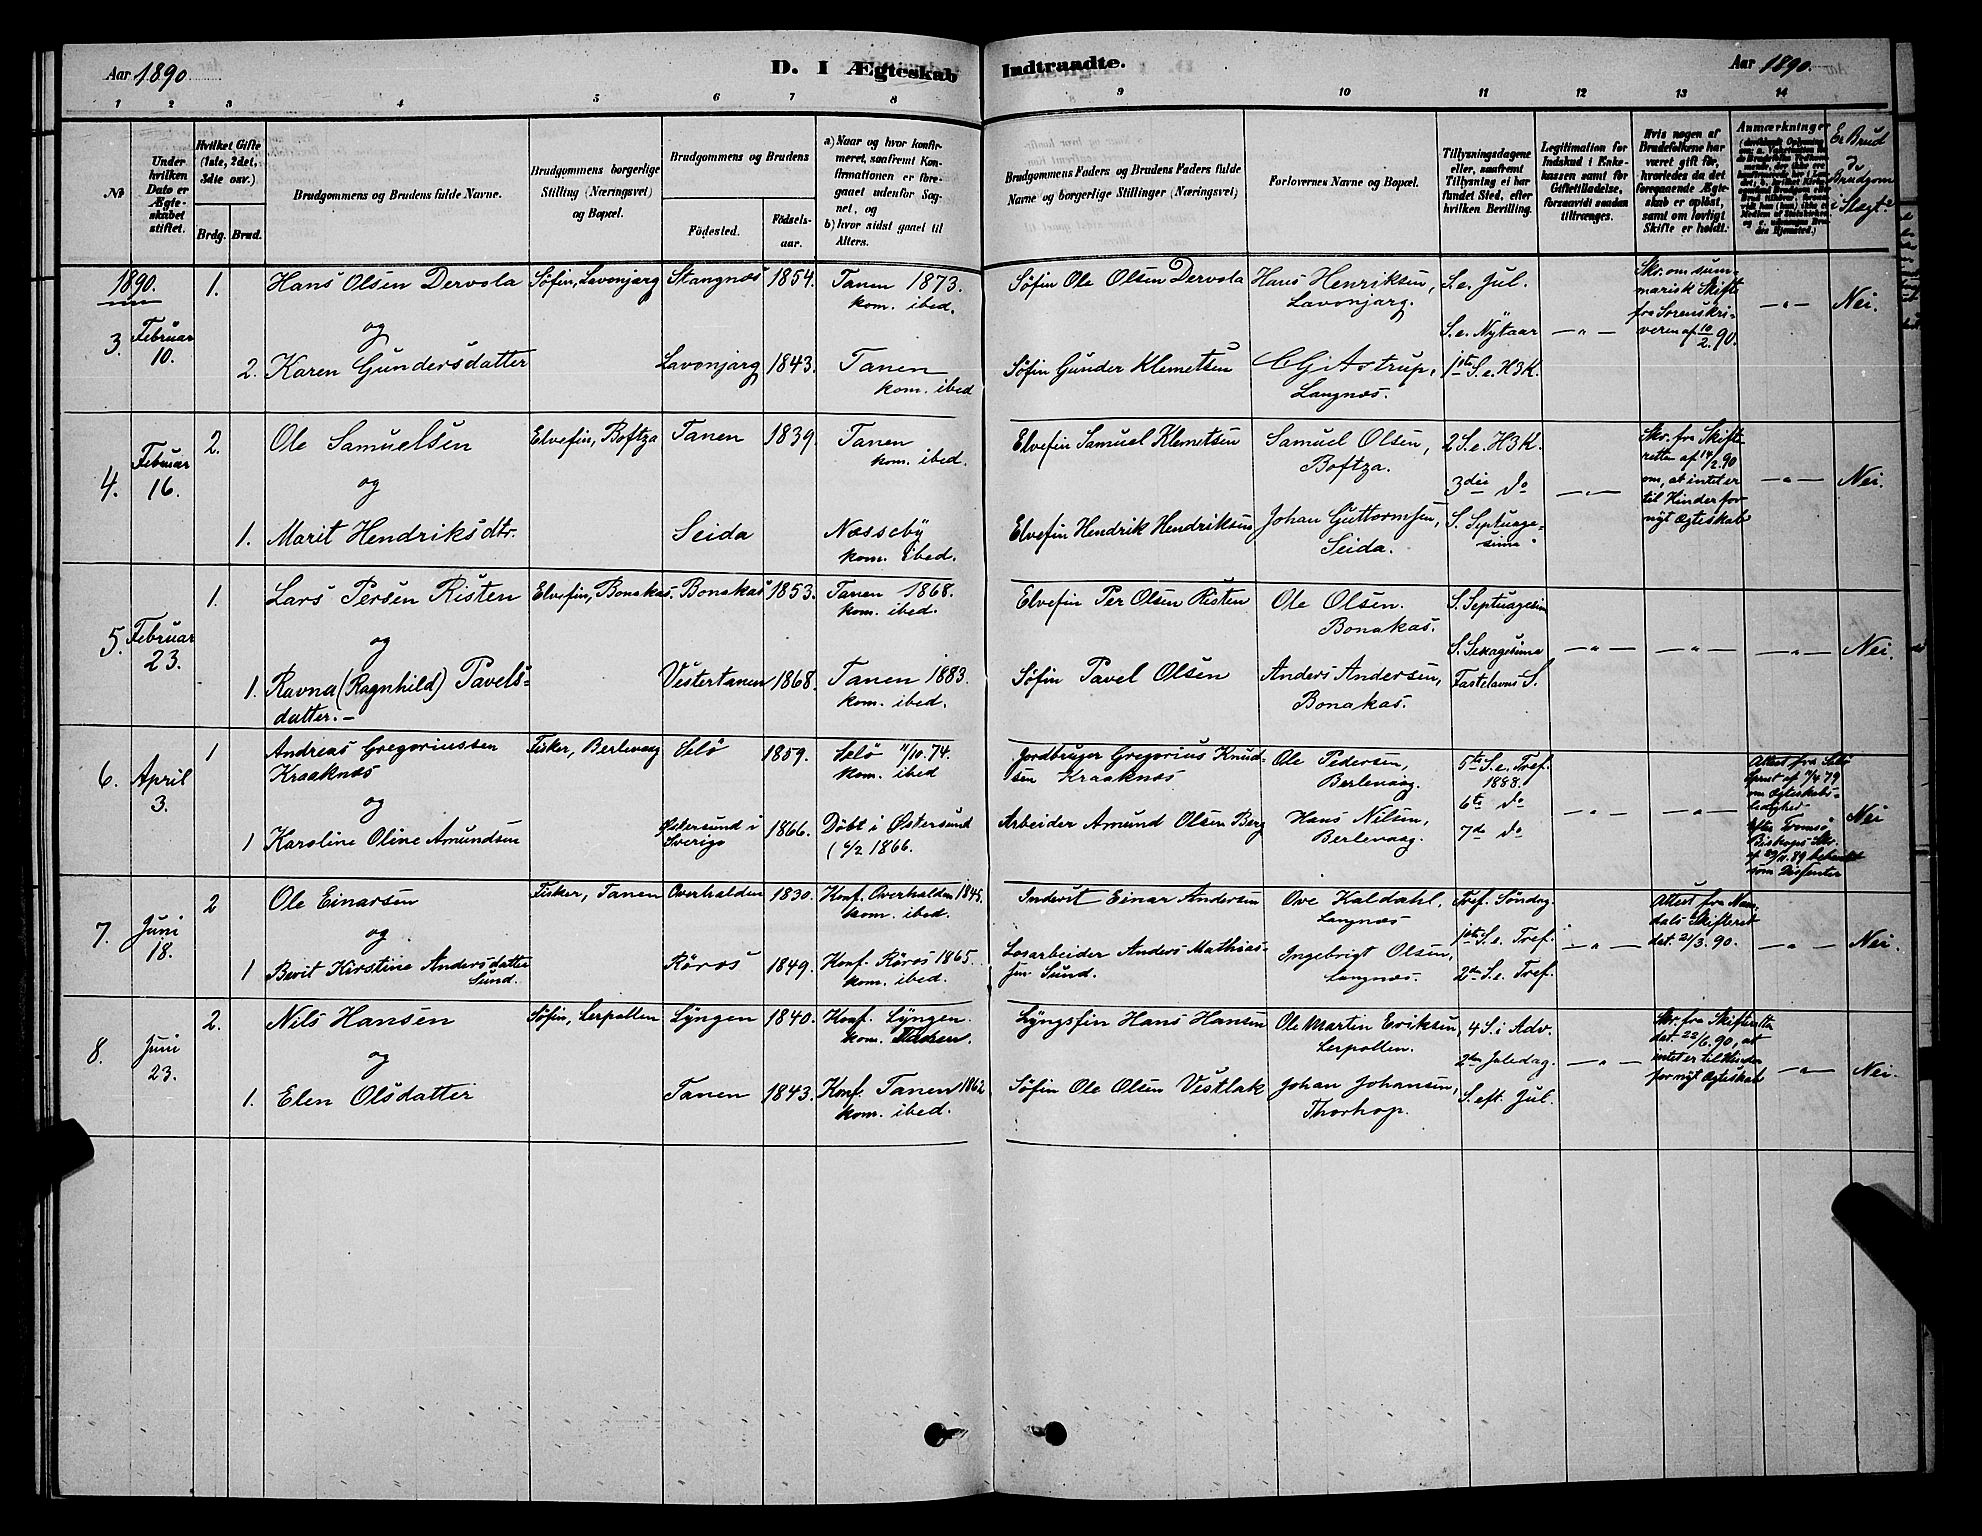 Aar 1890.
D. I Ægteskab Indtraadte.
Aar 1890.
1 2 3 4 5 6 7 8 9 10 11 12 13 14
No
Under hvilken Dato er Ægteskabet stiftet.
Hvilket Gifte (1ste, 2det, 3die osv.)
Brdg. Brud.
Brudgommens og Brudens fulde Navne.
Brudgommens borgerlige Stilling (Næringsvei) og Bopæl.
Brudgommens og Brudens
Födested.
Födsels-
aar.
a) Naar og hvor konfir-
meret, saafremt Kon-
firmationen er fore-
gaaet udenfor Sog-
net, og
b) hvor sidst gaaet til
Alters.
Brudgommens Faders og Brudens Faders fulde
Navne og borgerlige Stillinger (Næringsvei)
Forlovernes Navne og Bopæl.
Tillysningsdagene
eller, saafremt
Tillysning ei har
fundet Sted, efter
hvilken Bevilling.
Legitimation for
Indskud i Enke-
kassen samt for
Giftetilladelse,
forsaavidt saadan
tiltrænges.
Hvis nogen af
Brudefolkene har
været gift för,
hvorledes da det
foregaaende Ægte-
skab er oplöst,
samt om lovligt
Skifte er holdt.
Anmærkninger
Er Brud
o
Brudgom
i Slægt?
1890.
3. Februar 10.
1. Hans Olsen Dervola Søfin, Lavonjarg Stangnæs 1854. Tanen 1873. kom. ibed.
Søfin Ole Olsen Dervola Hans Henriksen, Lavonjarg. S. e. Jul.
og
S. e. Nytaar
2. Karen Gundersdatter Lavonjarg 1843. Tanen kom. ibed
Søfin Gunder Klemetsen C G Astrup, Langnæs. 1ste S. e. H3K.
Skr. om sum-
marisk Skifte
fra Sorenskri-
veren af 10/2 90.
Nei.
4. Februar 16.
2. Ole Samuelsen Elvefin, Boftza Tanen 1839. Tanen kom. ibed.
Elvefin Samuel Klemetsen Samuel Olsen, Boftza. 2 S. e. H3K.
og
3die do
1. Marit Hendriksdtr. Seida Næsseby kom. ibed.
Elvefin Hendrik Hendriksen Johan Guttormsen, Seida. S. Septuage-
sima
Skr. fra Skifte-
retten af 14/2 90
om, at intet er
til Hinder for
nyt Ægteskab
Nei.
5. Februar 23.
1. Lars Persen Risten Elvefin, Bonakas. Bonakas 1853. Tanen 1868. kom. ibed.
Elvefin Per Olsen Risten Ole Olsen. Bonakas. S. Septuagesim
og
S. Sexagesima
1. Ravna (Ragnhild) Pavels-
datter. Vestertanen 1868. Tanen 1883. kom. ibed.
Søfin Pavel Olsen Anders Andersen, Bonakas. Fastelavns S.
Nei.
6. April 3.
1 Andreas Gregoriussen
Kraaknæs Fisker, Berlevaag Selö 1859. Selö 11/10. 74. kom. ibed
Jordbruger Gregorius Knud-
sen Kraaknæs Ole Pedersen, Berlevaag. 5te S. e. Tref. 1888.
og
6te do
1 Karoline Oline Amundsen Østersund i Sverige 1866. Döbt i Østersund 6/2 1866.
Arbeider Amund Olsen Berg Hans Nilsen, Berlevaag. 7de do
Attest fra Selö
om Ægteskabs-
ledighed
efter Tromsö
Biskops Skr.
som Dissenter
Nei
7. Juni 18.
2 Ole Einarsen Fisker, Tanen Overhalden 1830. Konf. Overhalden 1845. kom. ibed.
Inderst Einar Andersen Ove Kaldahl, Langnæs Tref. Söndag.
og
1ste S. e. Tref.
1 Berit Kirstine Andersdatter
Sund. Röros 1849. Konf. Röros 1865. kom. ibed.
Losarbeider Anders Mathias-
sen Sund. Ingebrigt Olsen, Langnæs. 2den S. e. Tref.
Attest fra Nam-
dals Skifteret
dat. 21/3. 90.
Nei.
8. Juni 23.
2. Nils Hansen Søfin, Lerpollen Lyngen 1840. Konf. Lyngen. kom. Tanen.
Lyngsfin Hans Hansen Ole Martin Eriksen, Lerpollen. 4 S. i Adv.
og
2den Juledag.
1. Elen Olsdatter Tanen 1843. Konf. Tanen 1862 kom. ibed.
Søfin Ole Olsen Vestlak Johan Johansen, Thorhop. S. eft. Jul.
Skr. fra Skifteretten
dat. 22/6. 90, at
intet er til Hinder
for nyt Ægteskab
Nei.